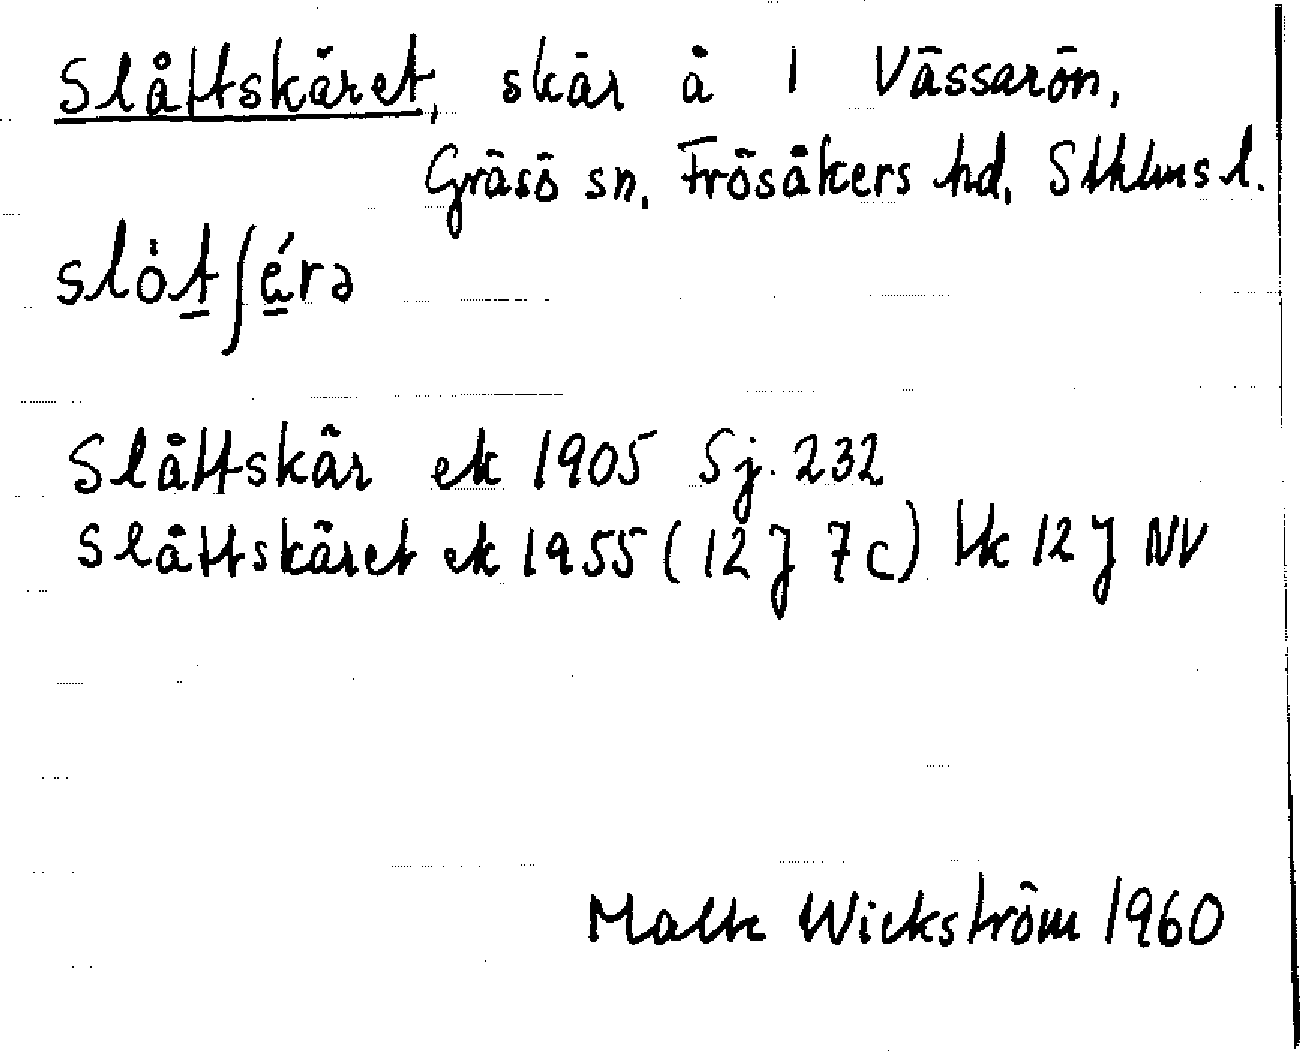 Slåttskäret, skär å 1 Vässarön,
Gräsö sn, Frösåkers hd, Sthlms l.
slòtʃérə
Slåttskär ek 1905 Sj. 232
Slåttskäret ek 1955 (12 J 7c) 12 J NV
Wickström 1960